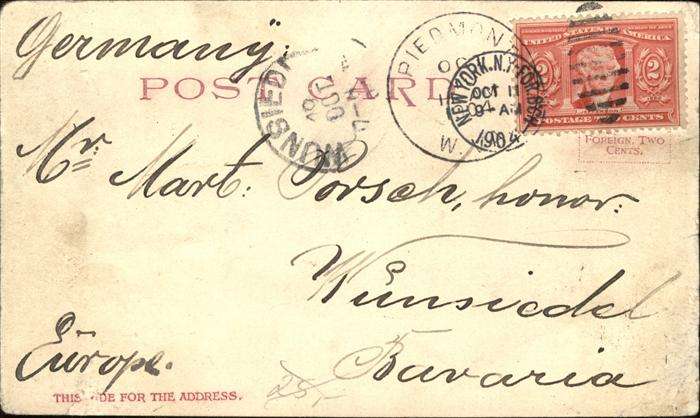 Germany:
POST CARD
WUNSIEDEL
PIEDMONT
W.
NEW YORK, N.Y.
OCT 11
9 AM
1904
UNITED STATES OF AMERICA
2 2
POSTAGE TWO CENTS
FOREIGN, TWO
CENTS.
Mr. Mart. Porsch, honor:
Wŭnsiedel
Eŭrope.
Bavaria
25,-
THIS SIDE FOR THE ADDRESS.